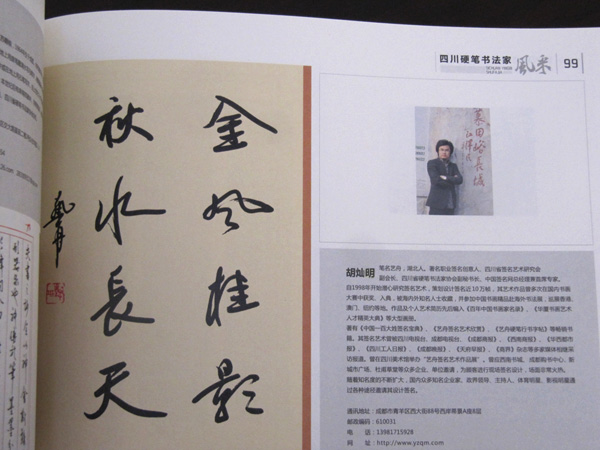 四川硬笔书法家
風采
99
金风桂影
秋水长天
艺舟
莫田峪長城
胡灿明
笔名艺舟,湖北人。著名职业签名创意人、四川省签名艺术研究会
副会长、四川省硬笔书法家协会副秘书长、中国签名网总经理兼首席专家。
自1998年开始潜心研究签名艺术,策划设计签名近10万帧,其艺术作品曾多次在国内书画
大赛中获奖、入典,被海内外知名人士收藏,并参加中国书画精品赴海外书法展,巡展香港、
澳门、纽约等地。作品及个人艺术简历先后编入《百年中国书画家名录》、《华夏书画艺术
人才精英大典》等大型画册。
著有《中国一百大姓签名宝典》、《艺舟签名艺术欣赏》、《艺舟硬笔行书字帖》等畅销书
籍。其签名艺术曾被四川电视台、成都电视台、《成都商报》、《西南商报》、《华西都市
报》、《四川工人日报》、《成都晚报》、《天府早报》、《商界》杂志等多家媒体相继采
访报道。曾在四川美术馆举办“艺舟签名艺术作品展”。曾应西南书城、成都购书中心、新
城市广场、杜甫草堂等众多企业、单位邀请,为顾客进行现场签名设计,场面非常火热。
随着知名度的不断扩大,国内众多知名企业家、政界领导、主持人、体育明星、影视明星通
过各种途径邀请其设计签名。
通讯地址:成都市青羊区西大街88号西岸蒂景A座8层
邮政编码:610031
电 话:13981715928
网 址:http://www.yzqm.com